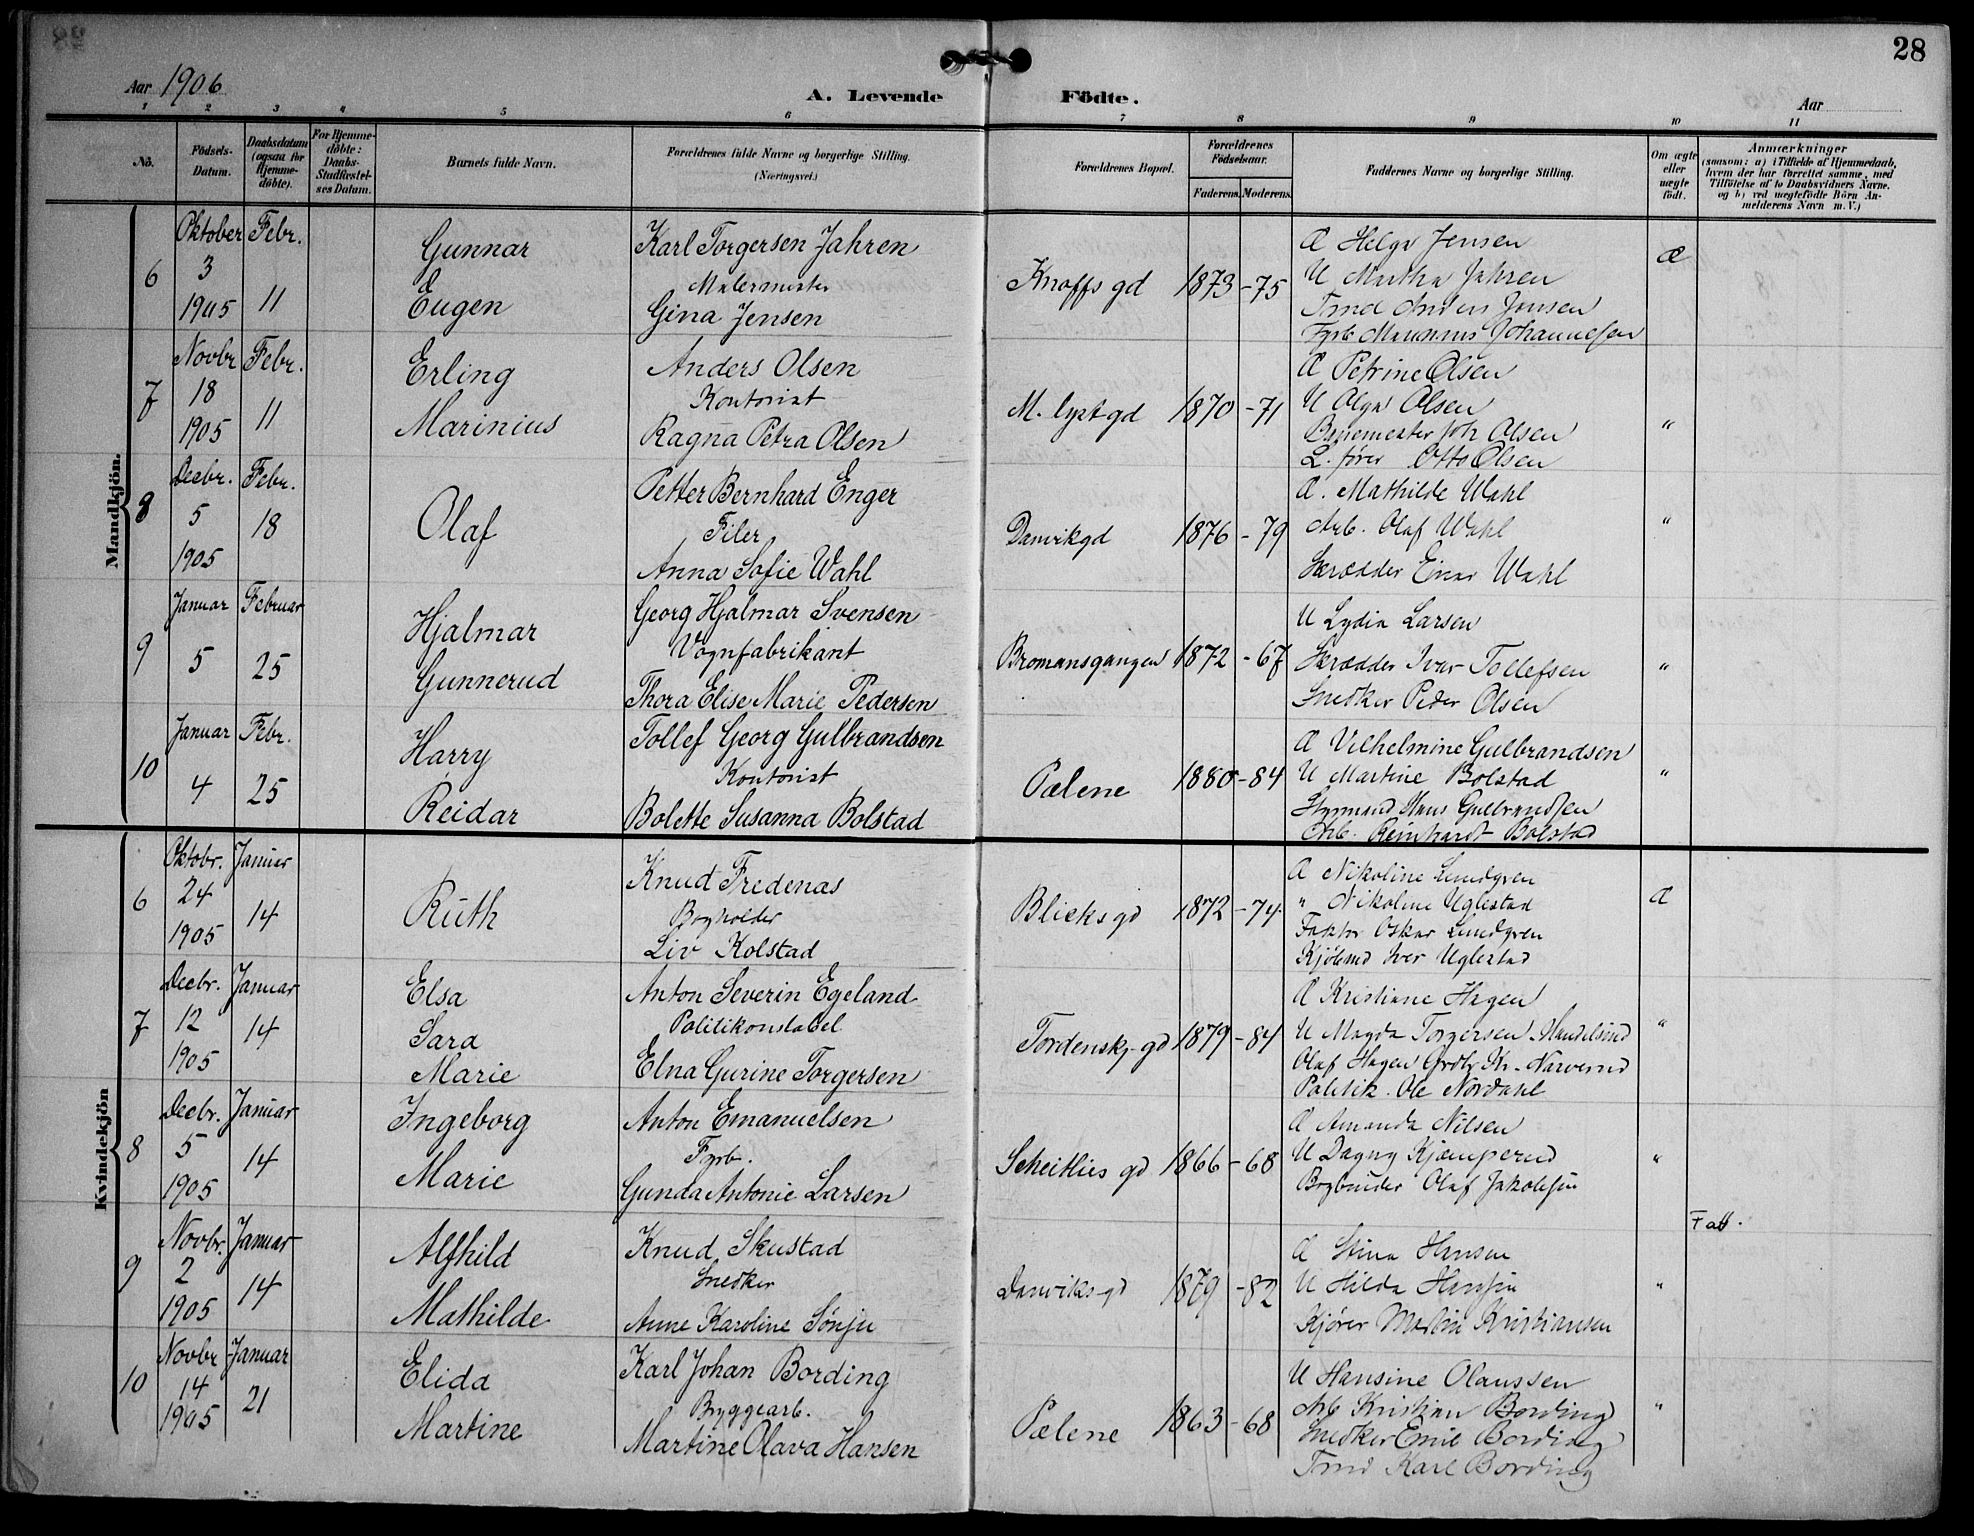 28
Aar 1906
A. Levende Födte.
Aar
1 2 3 4 5 6 7 8 9 10 11
No.
Födsels-Datum.
Daabsdatum (ogsaa for Hjemme-döbte).
For Hjemme-döbte: Daabs-Stadfæstel-ses Datum.
Barnets fulde Navn.
Forældrenes fulde Navne og borgerlige Stilling.
(Næringsvei.)
Forældrenes Bopæl.
Forældrenes Födselsaar.
Faderens. Moderens.
Faddernes Navne og borgerlige Stilling.
Om ægte eller uægte födt.
Anmærkninger
(saasom: a) i Tilfælde af Hjemmedaab, hvem der har forrettet samme, med Tilföielse af to Daabsvidners Navne. og b) ved uægtefödte Börn An-melderens Navn m. V.)
Mandkjön.
6
Oktober 3 1905
Febr. 11
Gunnar
Eugen
Karl Torgersen Jahren
Malermester
Gina Jensen
Knoffs gd
1873 - 75
Æ Helga Jensen
U Martha Jahren
Tmd Anders Jensen
Fyrb Johannesen
Æ
7
Novbr 18 1905
Febr. 11
Erling
Marinius
Anders Olsen
Kontorist
Ragna Petra Olsen
M. lyst gd
1870 - 71
Æ Petrine Olsen
U Olga Olsen
Banemester Joh Olsen
L. fører Otto Olsen
"
8
Decbr. 5 1905
Febr. 18
Olaf
Petter Bernhard Enger
Filer
Anna Sofie Wahl
Danvikgd
1876 - 79
Æ. Mathilde Wahl
Arb. Olaf Wahl
Skrædder Einar Wahl
"
9
Januar 5
Februar 25
Hjalmar
Gunnerud
Georg Hjalmar Svensen
Vognfabrikant
Thora Elise Marie Pedersen
Bromansgangen
1872 - 67
U Lydia Larsen
Skrædder Ivar Tollefsen
Snedker Peder Olsen
"
10
Januar 4
Febr. 25
Harry
Reidar
Tollef Georg Gulbrandsen
Kontorist
Bolette Susanna Bolstad
Pælene
1880 - 84
Æ Vilhelmine Gulbrandsen
U Martine Bolstad
Styrmand Hans Gulbrandsen
Arb. Reinhardt Bolstad
"
Kvindekjön
6
Oktobr. 24 1905
Januar 14
Ruth
Knud Fredenas
Bogholder
Liv Kolstad
Blicks gd
1872 - 74
Æ Nikoline Lundgren
" Nikoline Uglestad
Faktor Oskar Lundgren
Kjøbmd Iver Uglestad
Æ
7
Decbr. 12 1905
Januar 14
Elsa
Sara
Marie
Anton Severin Egeland
Politikonstabel
Elna Gurine Torgersen
Tordenskj. gd
1879 - 84
Æ Kristiane Hagen
U Magda Torgersen. Handelsmd
Olaf Hagen Grdbr Kr. Narverud
Politik. Ole Nordahl
"
8
Decbr. 5 1905
Januar 14
Ingeborg
Marie
Anton Emanuelsen
Fyrb.
Gunda Antonie Larsen
Scheitlies gd
1866 - 68
Æ Amanda Nilsen
U Dagny Kjæmperud
Bogbinder Olaf Jakobsen
"
9
Novbr. 2 1905
Januar 14
Alfhild
Mathilde
Knud Skustad
Snedker
Anne Karoline Sønju
Danviks gd
1879 - 82
Æ Stina Hansen
U Hilda Hansen
Kjører Martin Kristiansen
"
Fatt.
10
Novbr 14 1905
Januar 21
Elida
Martine
Karl Johan Bording
Bryggearb.
Martine Olava Hansen
Pælene
1863 - 68
U Hansine Olaussen
Arb Kristian Bording
Snedker Emil Bording
Tmd Karl Bording
"